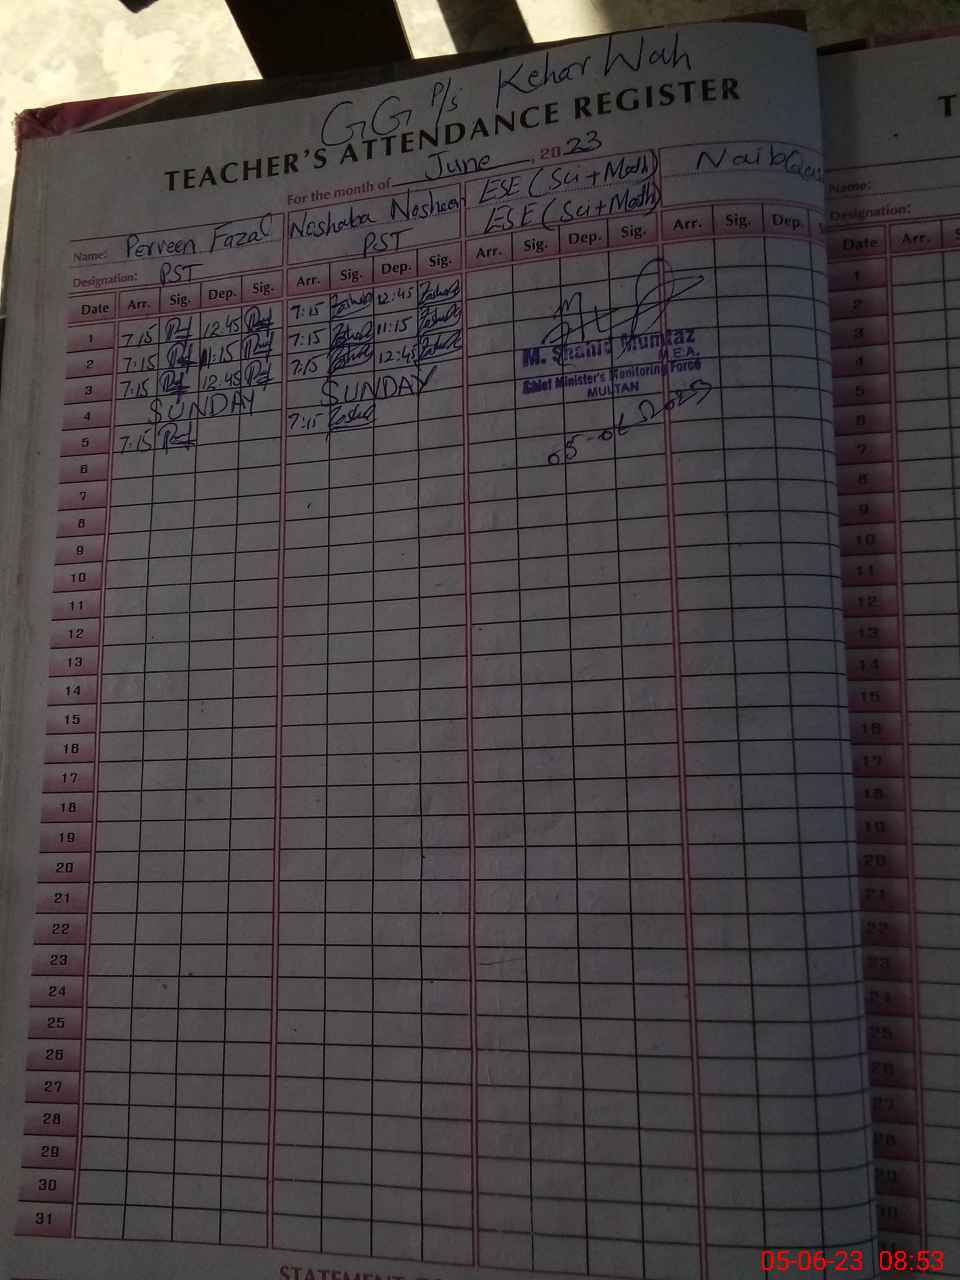 GG P/s Kehar Wah
TEACHER'S ATTENDANCE REGISTER
For the month of June, 2023
Name: Perveen Fazal Noshaba Nosheen ESE (Sci + Math) Naib
Designation: PST PST ESE (Sci + Math)
Date Arr. Sig. Dep. Sig. Arr. Sig. Dep. Sig. Arr. Sig. Dep. Sig. Arr. Sig. Dep.
1 7:15 12:45 7:15 12:45
2 7:15 11:15 7:15 11:15
3 7:15 12:45 7:15 12:45
4 SUNDAY SUNDAY
5 7:15 7:15
M. Shahid Mumtaz
M.E.A.
Chief Minister's Monitoring Force
MULTAN
05-06-2023
6
7
8
9
10
11
12
13
14
15
16
17
18
19
20
21
22
23
24
25
26
27
28
29
30
31
STATEMENT
T
Name:
Designation:
Date Arr. S
1
2
3
4
5
6
7
8
9
10
11
12
13
14
15
16
17
18
19
20
21
22
23
24
25
26
27
28
29
30
05-06-23 08:53